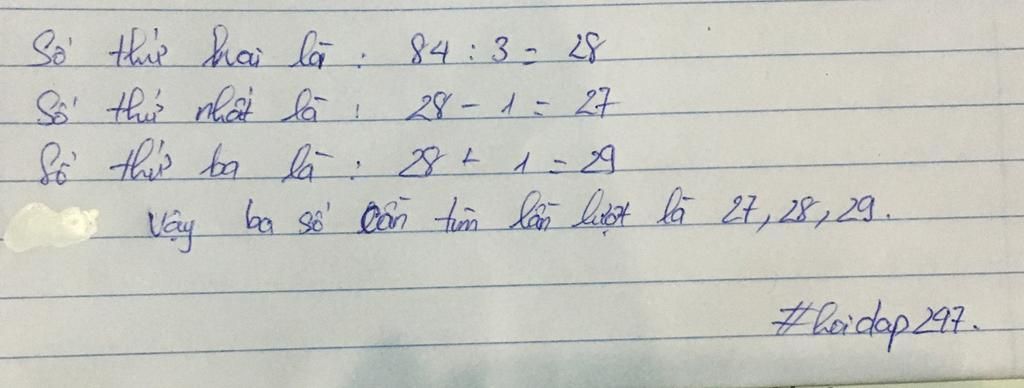 Số thứ hai là : 84 : 3 = 28
Số thứ nhất là : 28 - 1 = 27
Số thứ ba là : 28 + 1 = 29
Vậy ba số cần tìm lần lượt là 27, 28, 29.
#hoidap247.